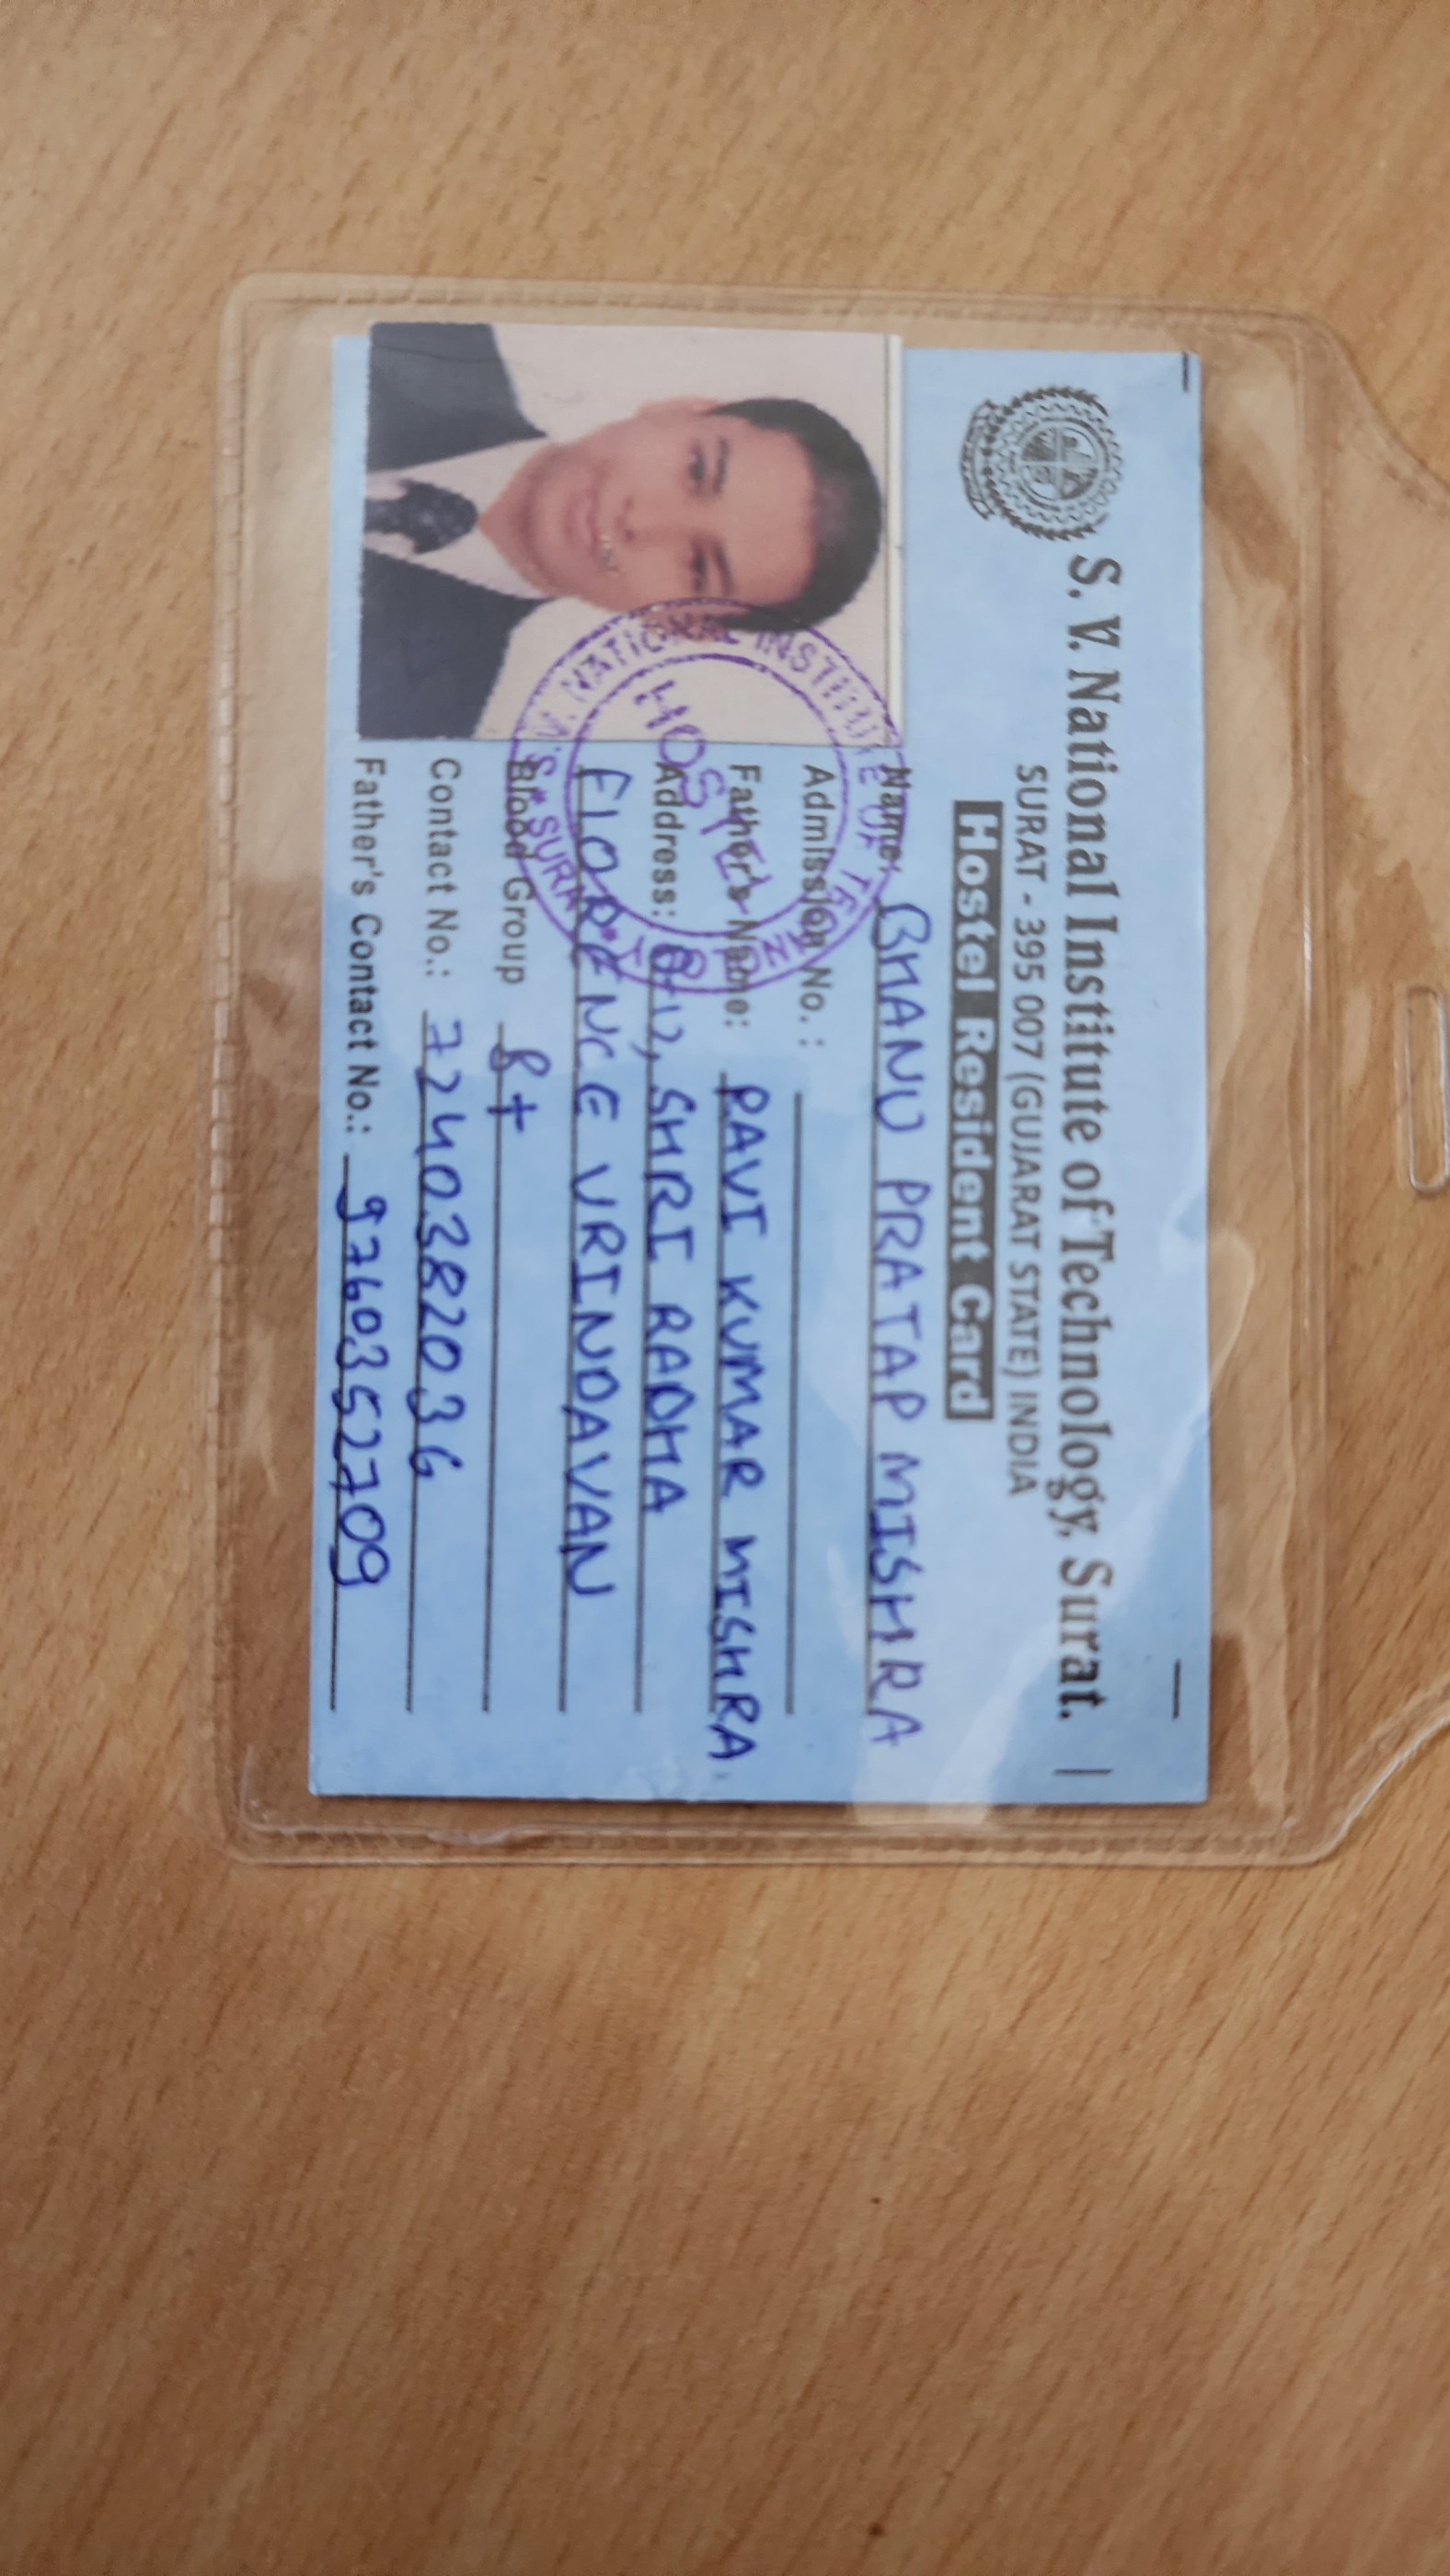 S. V. National Institute of Technology, Surat.
SURAT - 395 007 (GUJARAT STATE) INDIA
Hostel Resident Card
Name: BHANU PRATAP MISHRA
Admission No. :
Father's Name: RAVI KUMAR MISHRA.
Address: SHRI RADHA
FLORENCE VRINDAVAN
Blood Group B+
Contact No.: 7240382036
Father's Contact No.: 9760352709
S. V. NATIONAL INSTITUTE OF TECHNOLOGY * SURAT *
HOSTEL